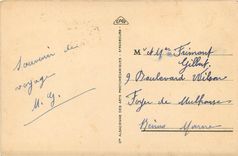 Souvenir de
voyage
M. G.
CIE ALSACIENNE DES ARTS PHOTOMÉCANIQUES - STRASBOURG
M. et Mme Frimont
Gilbert
9 Boulevard Wilson
Foyer de Mulhouse
Reims Marne